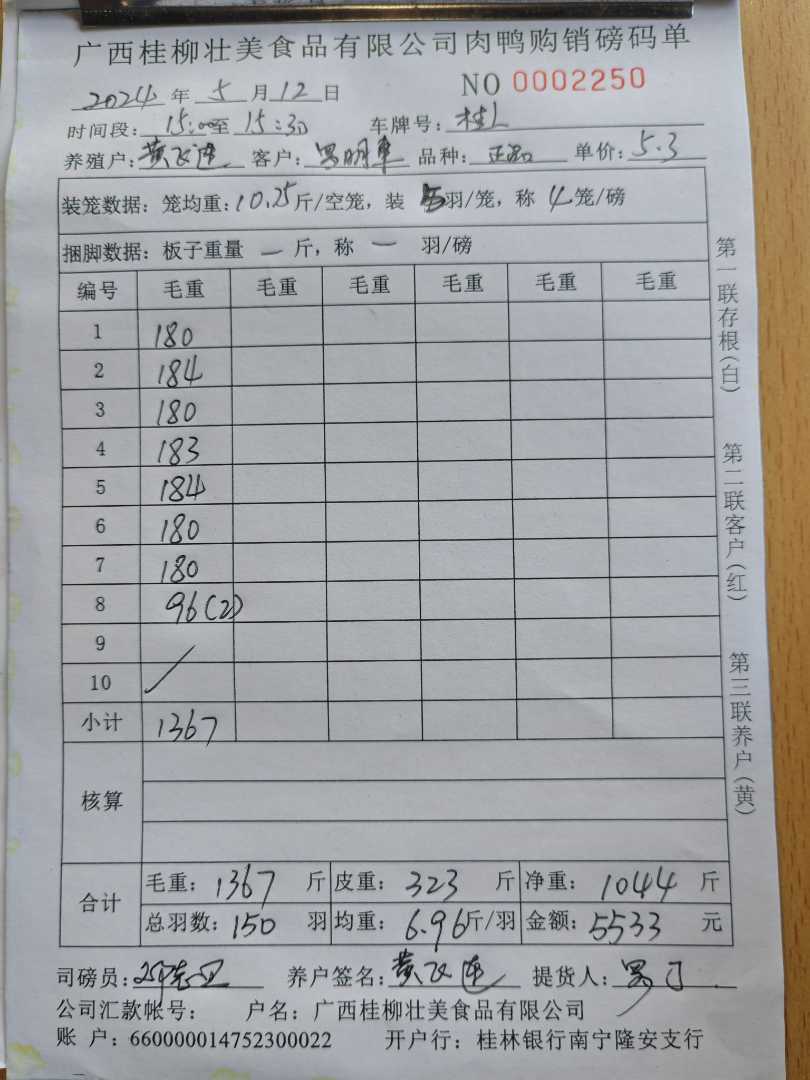 广西桂柳壮美食品有限公司肉鸭购销磅码单
NO 0002250
2024 年 5 月 12 日
时间段: 15:00 至 15:30 车牌号: 桂L
养殖户: 黄飞连 客户: 品种: 正品 单价: 5.3
装笼数据: 笼均重: 10.25 斤/空笼, 装 5 羽/笼, 称 4 笼/磅
捆脚数据: 板子重量 — 斤, 称 — 羽/磅
编号 毛重 毛重 毛重 毛重 毛重 毛重
1 180
2 184
3 180
4 183
5 184
6 180
7 180
8 96(2)
9
10
小计 1367
核算
合计 毛重: 1367 斤 皮重: 323 斤 净重: 1044 斤
总羽数: 150 羽 均重: 6.96 斤/羽 金额: 5533 元
司磅员: 养户签名: 黄飞连 提货人:
公司汇款帐号: 户名: 广西桂柳壮美食品有限公司
账 户: 660000014752300022 开户行: 桂林银行南宁隆安支行
第一联存根(白) 第二联客户(红) 第三联养户(黄)